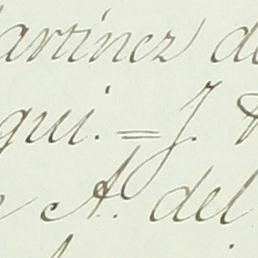 artinez de
gui. = J.
A. del